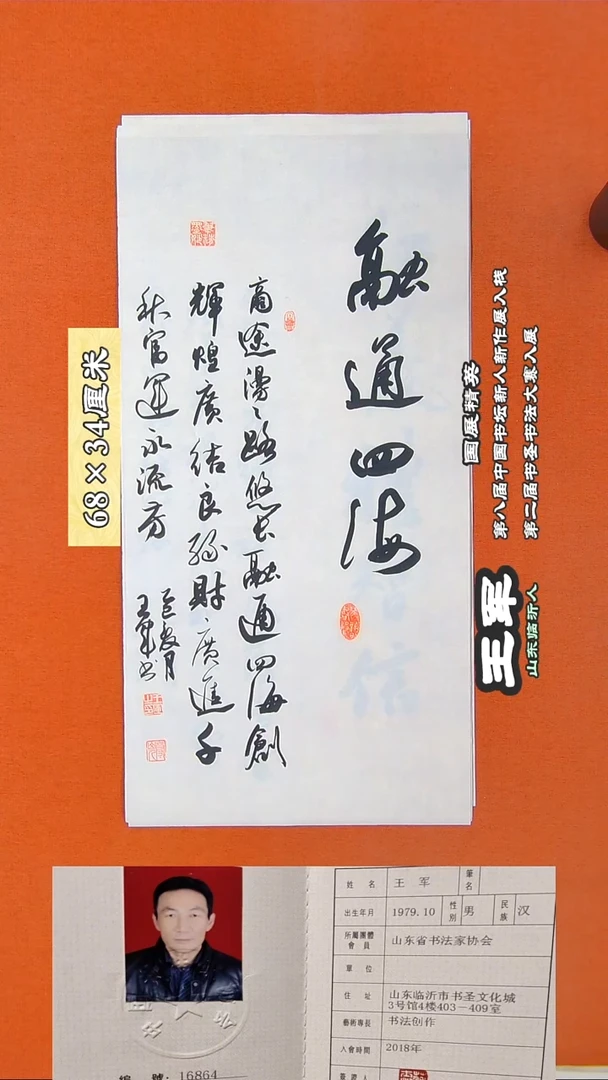 融通四海
商途漫漫路悠长融通四海創
輝煌廣结良缘財廣進千
秋富運永流芳
王军书
68×34厘米
国展精英
第八届中国书坛新人新作展入展
第二届书圣书法大赛入展
王军
山东临沂人
姓 名 王 军 筆名
出生年月 1979.10 性別 男 民族 汉
所屬團體會員 山东省书法家协会
單 位
住 址 山东临沂市书圣文化城3号馆4楼403-409室
藝術專長 书法创作
入會時間 2018年
簽證人
編 號：16864